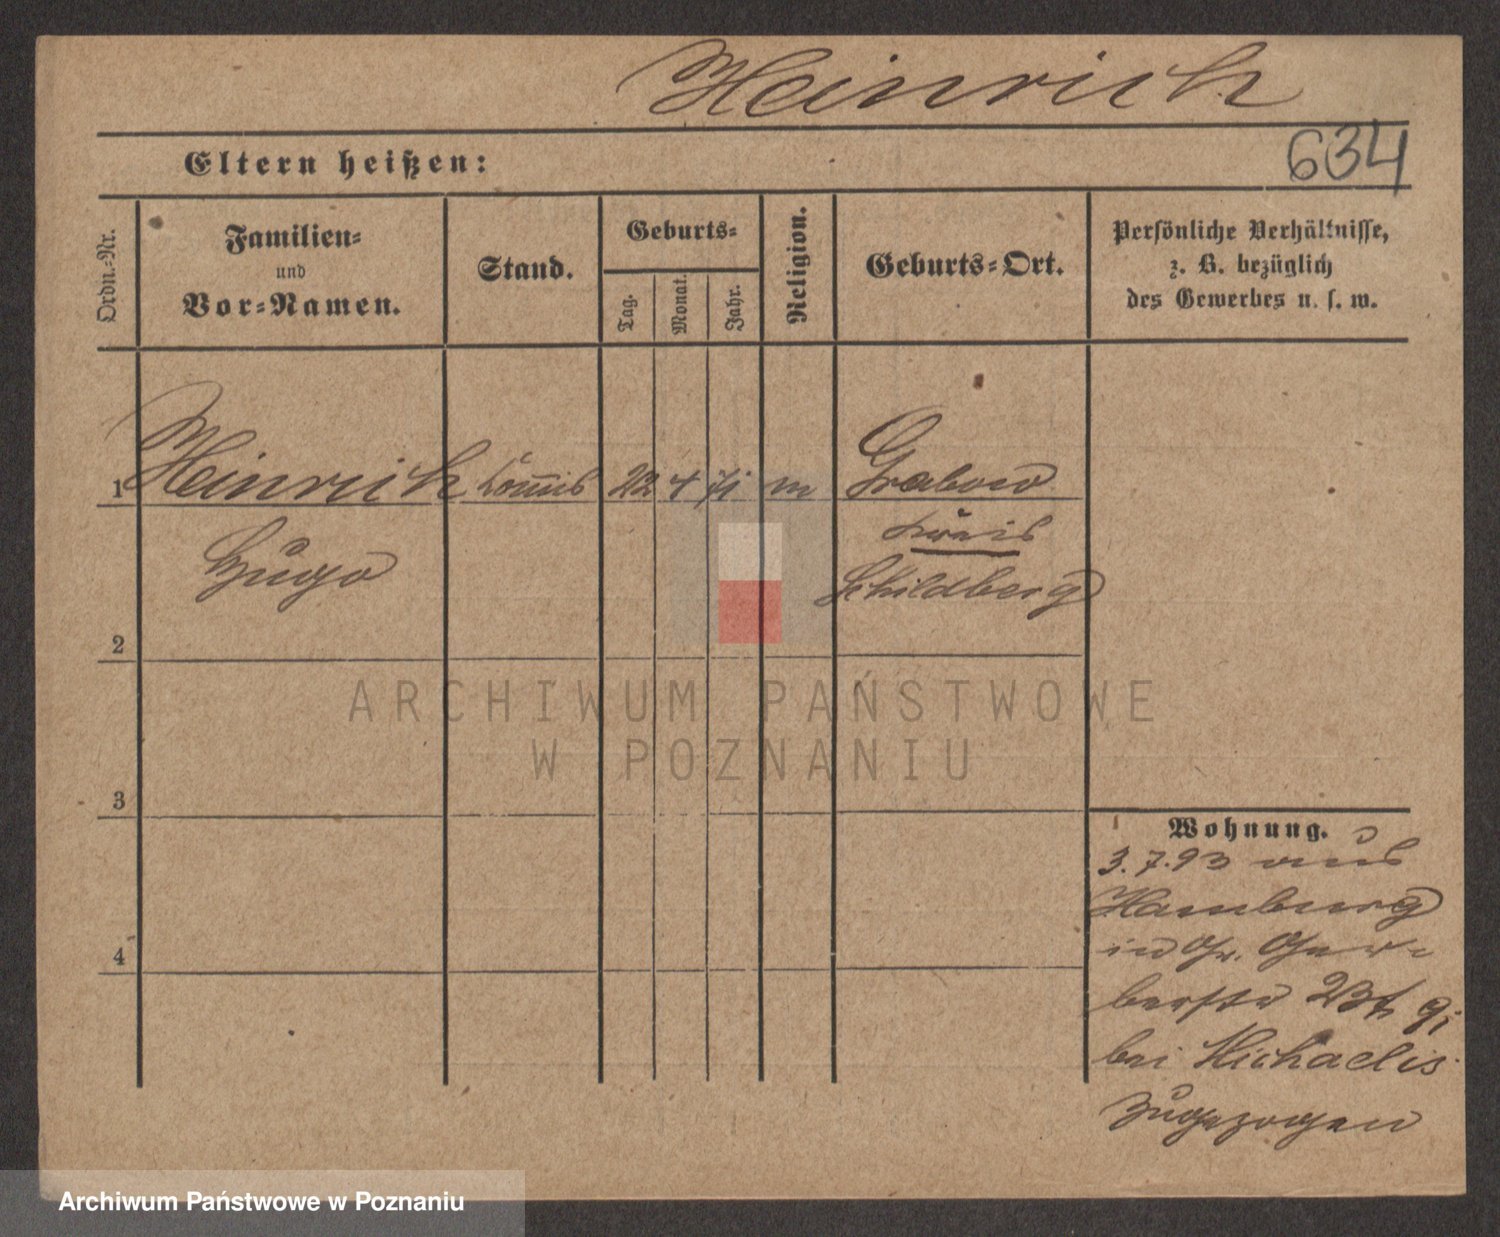 Heinrich
634
Eltern heißen:
Ordn.-Nr.
Familien-
und
Vor-Namen.
Stand.
Geburts-
Tag.
Monat.
Jahr.
Religion.
Geburts-Ort.
Persönliche Verhältnisse,
z. B. bezüglich
des Gewerbes u. s. w.
1 Heinrich Commis 22 4 71 m Grabow
Hugo
Kreis
Schildberg
2
3
4
Wohnung.
3.7.93 aus
Hamburg
in Gr. Ger-
berstr 23
bei Michaelis
zugezogen
ARCHIWUM PAŃSTWOWE
W POZNANIU
Archiwum Państwowe w Poznaniu